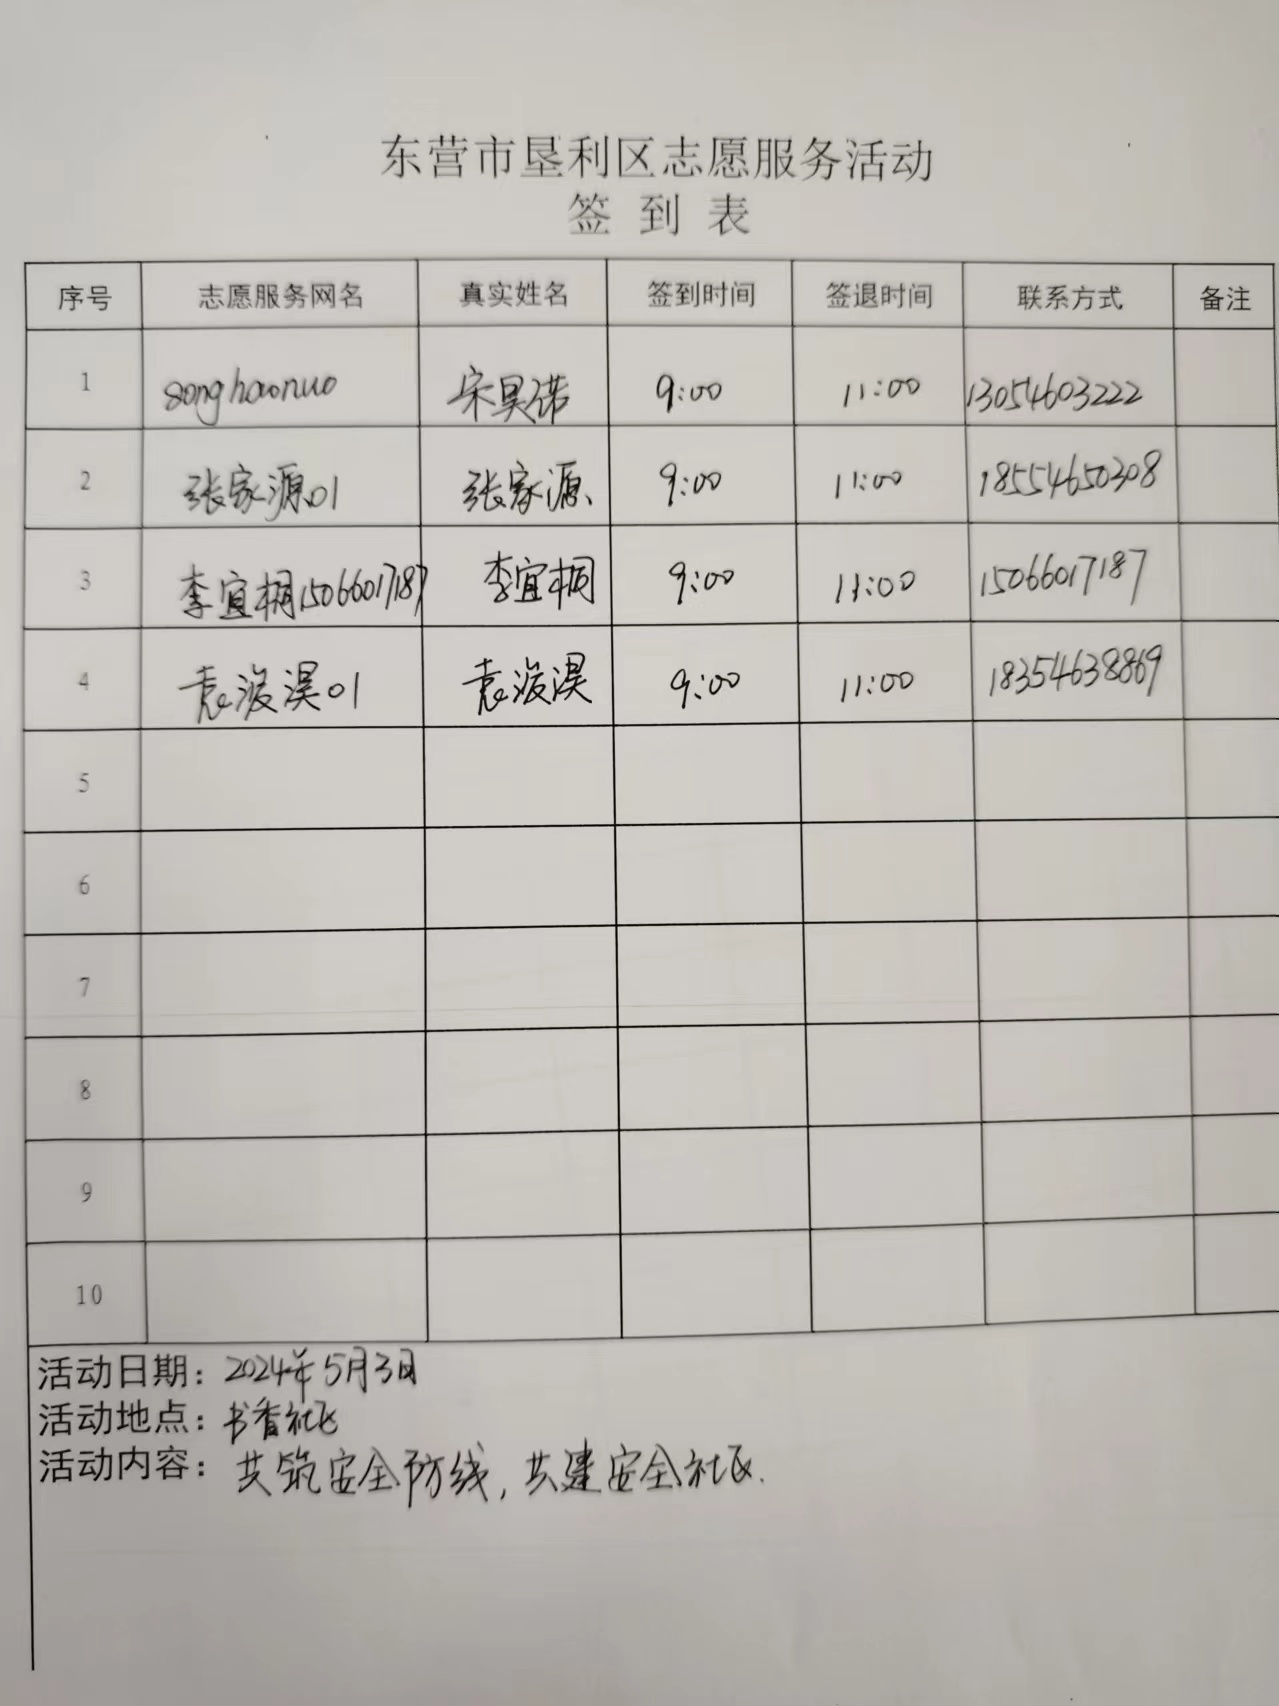 东营市垦利区志愿服务活动
签 到 表
序号 志愿服务网名 真实姓名 签到时间 签退时间 联系方式 备注
1 songhaonuo 宋昊诺 9:00 11:00 13054603222
2 张家源01 张家源 9:00 11:00 18554650308
3 李宜桐15066017187 李宜桐 9:00 11:00 15066017187
4 袁浚淏01 袁浚淏 9:00 11:00 18354638869
5
6
7
8
9
10
活动日期：2024年5月3日
活动地点：书香社区
活动内容：共筑安全防线，共建安全社区.